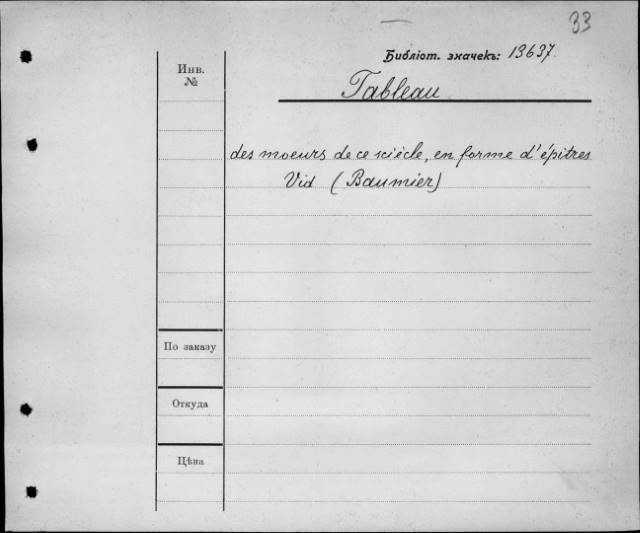 33
Библіот. значекъ: 13637.
Инв.
№
Tableau
des moeurs de ce siécle, en forme d'épitres
Vid (Baumier)
По заказу
Откуда
Цѣна